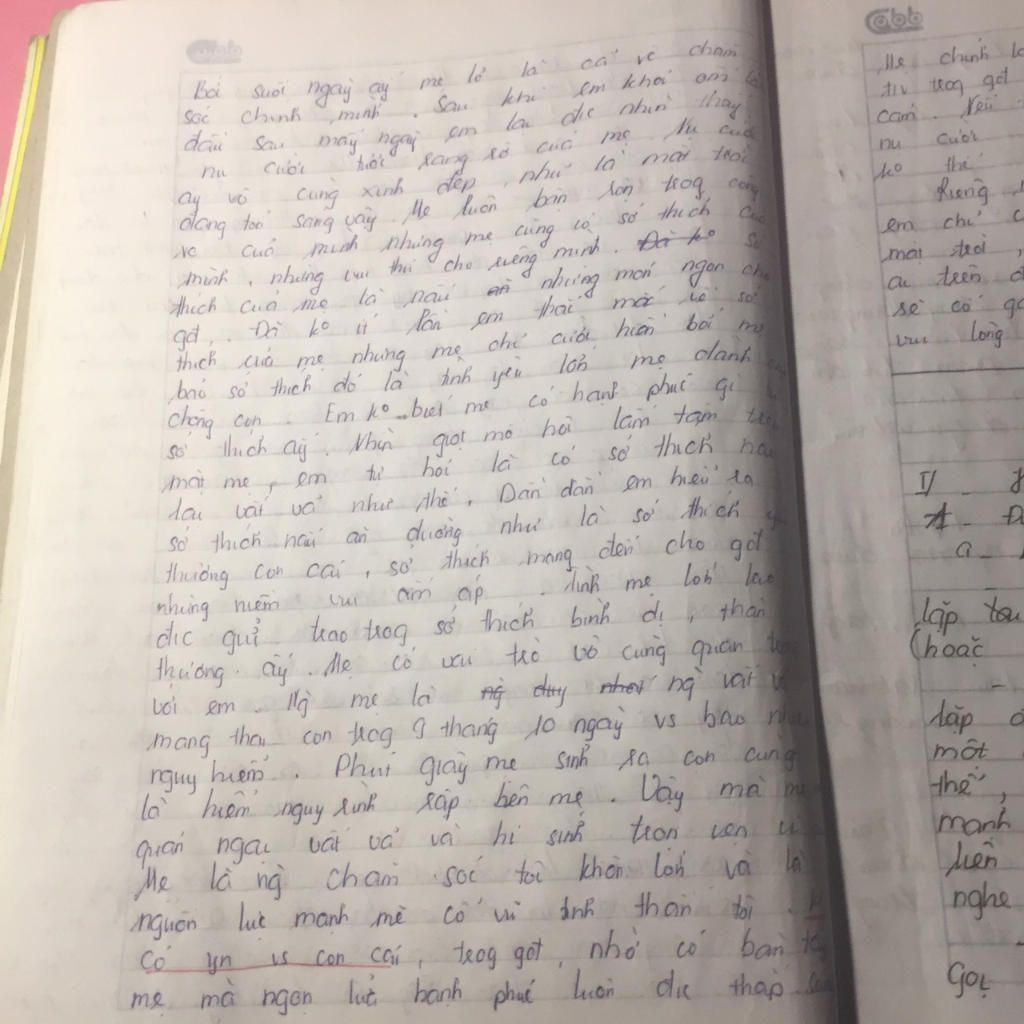 Bởi suốt ngày ấy mẹ lo là cả về chăm
sóc chính mình. Sau khi em khỏi ốm
đầu sau mấy ngày em lại đc nhìn thấy
nụ cười tươi sáng rỡ của mẹ. Nụ cười
ấy vô cùng xinh đẹp, như là mặt trời
đang toả sáng vậy. Mẹ luôn bận rộn trog công
vc cuả mình nhưng mẹ cũng có sở thích của
mình, những vui thú cho riêng mình. Đã ko sở
thích của mẹ là nấu ăn những món ngon cho
gđ. Đã ko ít lần em thắc mắc về sở
thích của mẹ nhưng mẹ chỉ cười hiền bởi mẹ
bảo sở thích đó là tình yêu lớn mẹ dành
chồng con. Em ko biết mẹ có hạnh phúc gì
sở thích ấy. Nhìn giọt mồ hôi lấm tấm trên
mặt mẹ, em tự hỏi là có sở thích nào
lại vất vả như thế. Dần dần em hiểu ra
sở thích nấu ăn dường như là sở thích
thường con cái, sở thích mang đến cho gđ
những niềm vui ấm áp. Tình mẹ lớn lao
đc gửi trao trog sở thích bình dị, thân
thương ấy. Mẹ có vai trò vô cùng quan
với em. Ng mẹ là ng duy nhất ng vất vả
mang thai con trog 9 tháng 10 ngày vs bao
nguy hiểm. Phút giây mẹ sinh ra con cũng
là hiểm nguy rình rập bên mẹ. Vậy mà
quản ngại vất vả và hi sinh trọn vẹn vì
Mẹ là ng chăm sóc tôi khôn lớn và là
nguồn lực mạnh mẽ cổ vũ tinh thần tôi.
Có yn vs con cái, trog gđ, nhờ có bàn tay
mẹ mà ngọn lửa hạnh phúc luôn đc thắp sáng
Cabb
Mẹ chính là
trog gđ
cảm. Nếu
nụ cười
ko thể
Riêng
em chỉ
mặt trời,
ai trên
sẽ cố gắ
vui lòng
II
A
a
lặp
(hoặc
lặp
một
thể,
mạnh
liền
nghe
Gọi